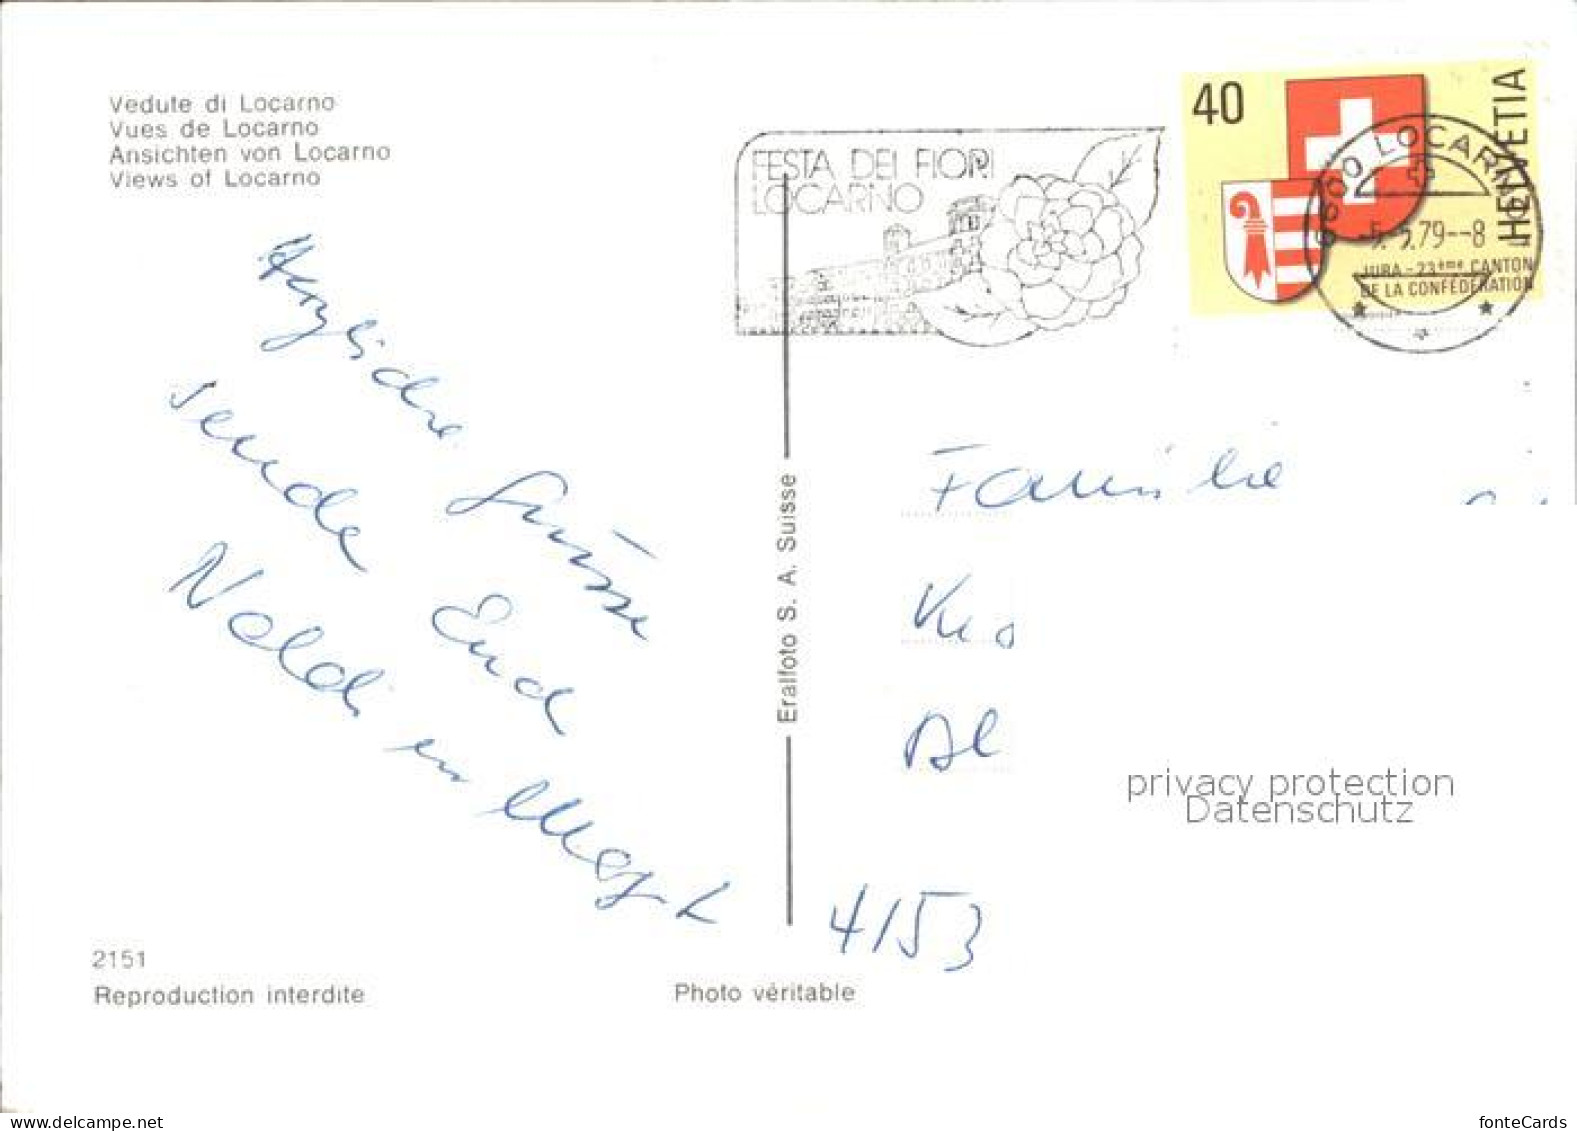 Vedute di Locarno
Vues de Locarno
Ansichten von Locarno
Views of Locarno
FESTA DEI FIORI
LOCARNO
40
HELVETIA
6600 LOCARNO
79--8
JURA - 23ème CANTON
DE LA CONFÉDÉRATION
Herzliche Grüsse
sende Euch
Noldi
Familie
Eralfoto S. A. Suisse
4153
privacy protection
Datenschutz
2151
Reproduction interdite
Photo véritable
www.delcampe.net
fonteCards